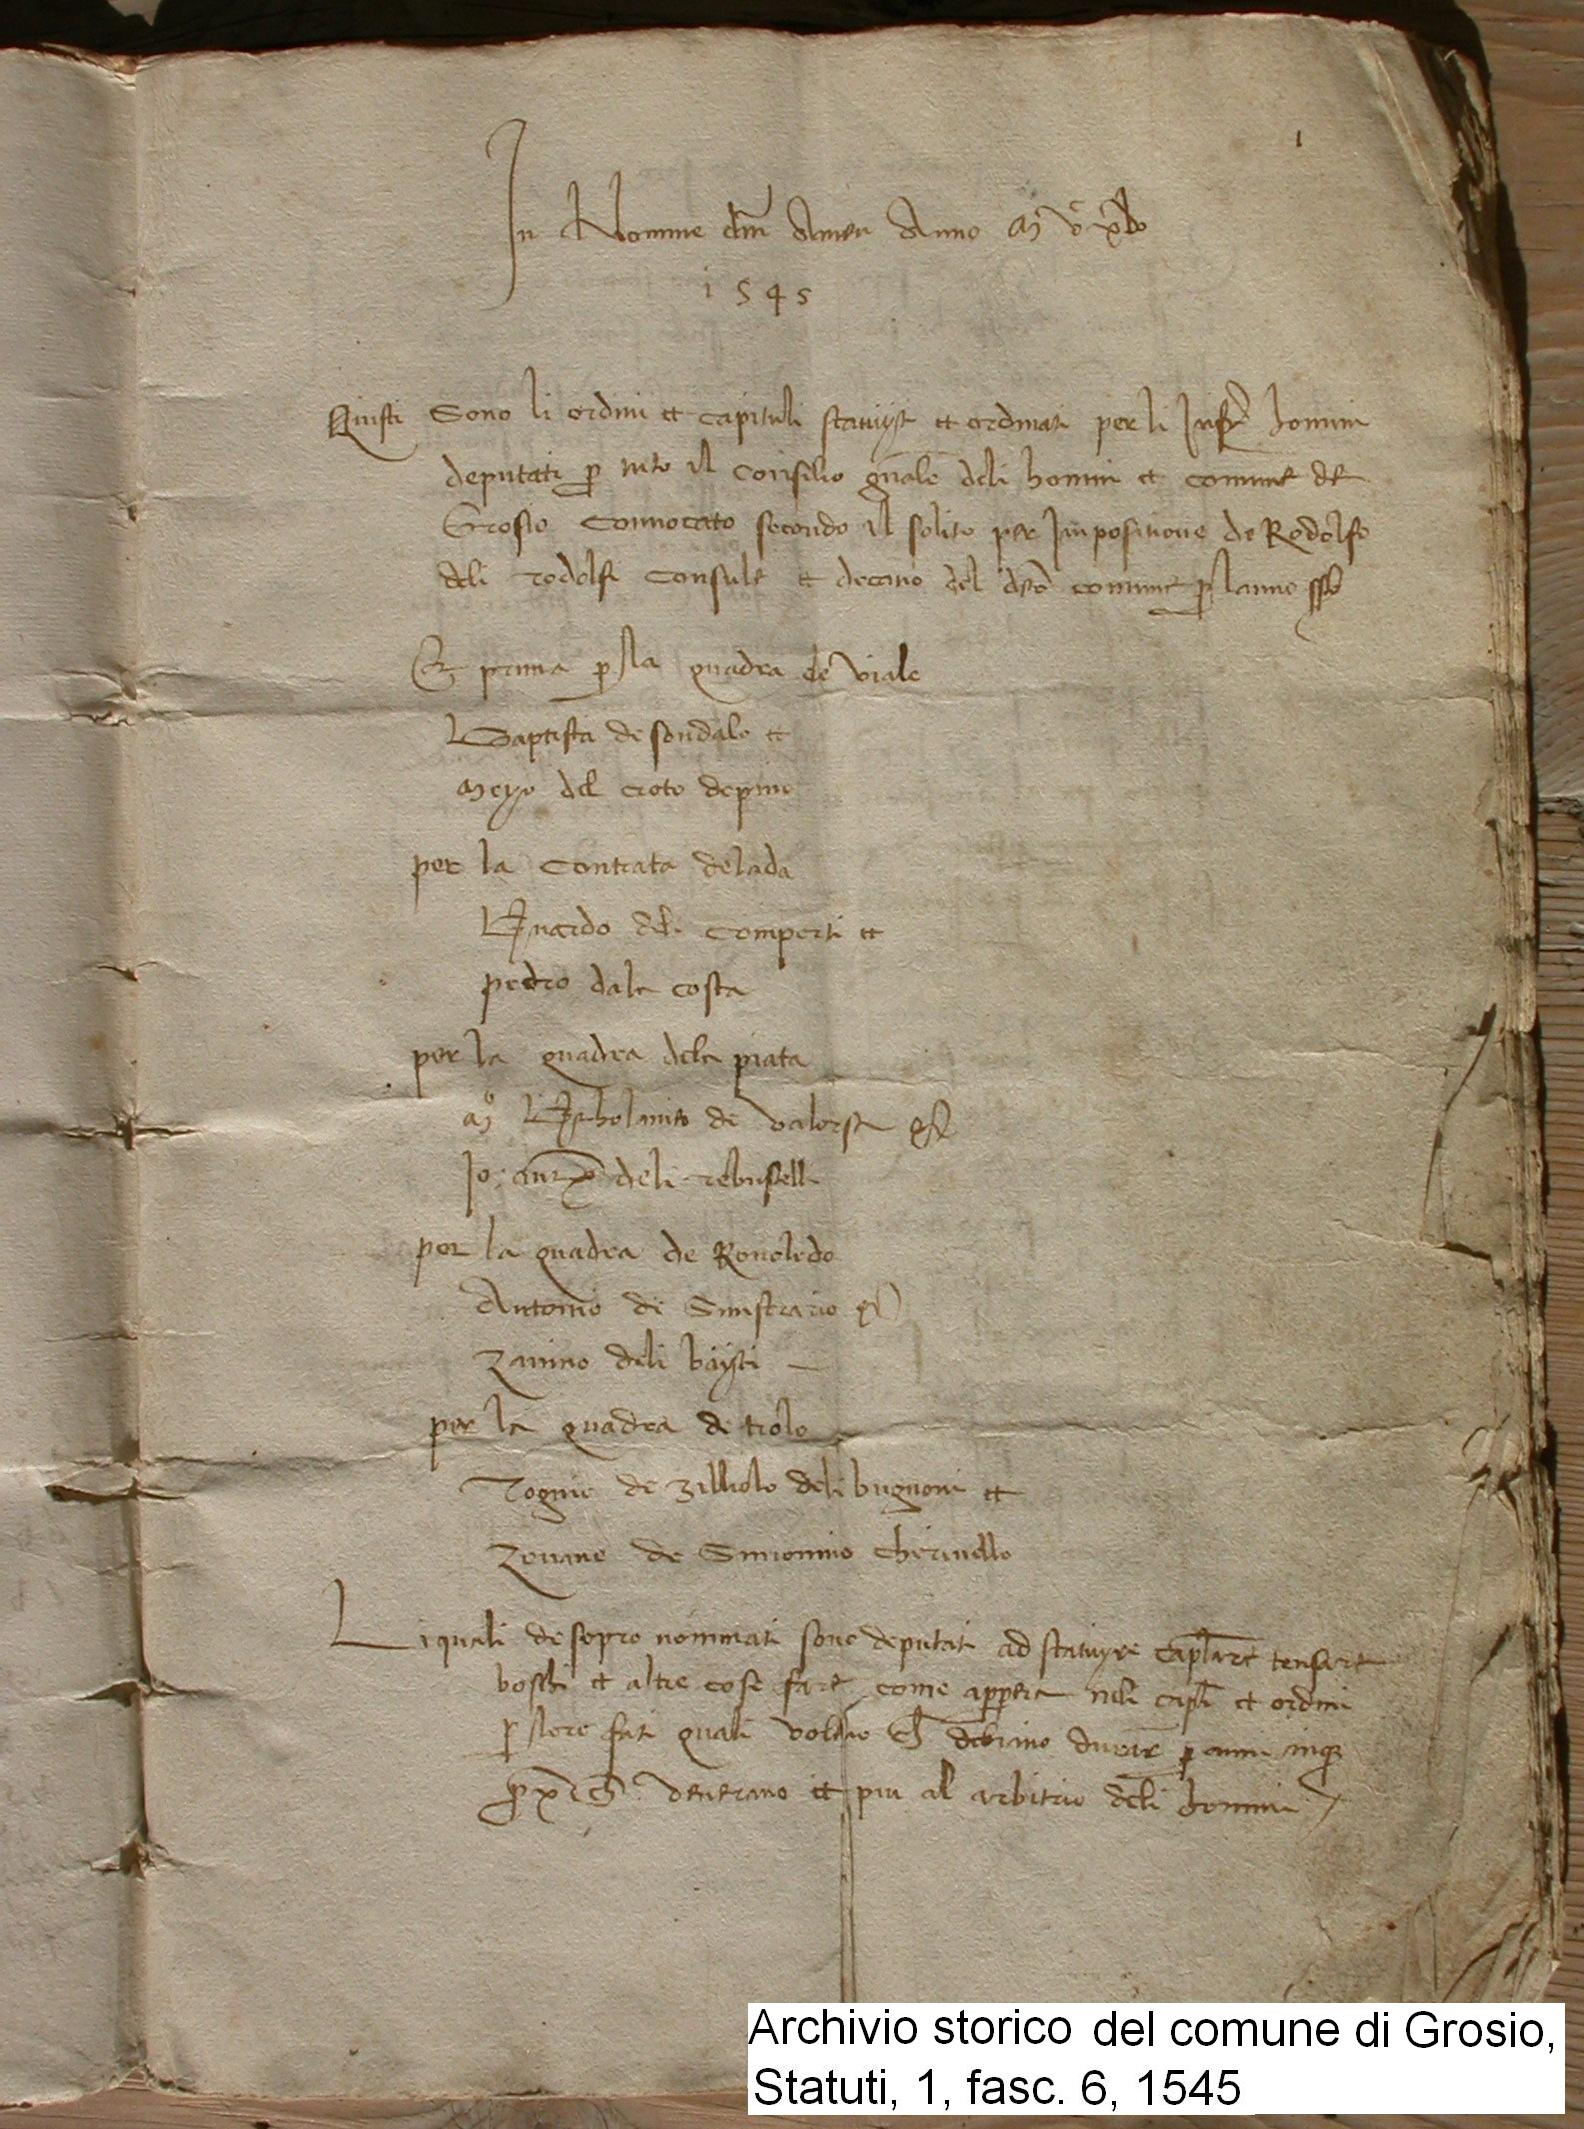 1
In Nomine dni Amen Anno
1545
Quisti Sono li ordini et capituli statuyti et ordinati per li homini
deputati p tuto il Consilio gnale deli homini et comune de
Grosio Convocato secondo il solito per Impositione de Rodolfo
deli rodolfi Consule et decano del dco comune p lanno
Et prima p la quadra de viale
Baptista de sondalo et
del croto
per la Contrata delada
deli comperti et
pedro dala costa
per la quadra dela piata
de valorsa
Jo: deli rebustelli
per la quadra de Rovoledo
Antonio de Sinistrario
Zanino deli
per la quadra de tiolo
Tognio de zilliolo deli bugnoni et
Zovane de Simonino
Li quali de sopro nominati sono deputati ad statuyre tensare
boschi et altre cose fare come neli capli et ordini
p fati quali durare p anni
et piu al arbitrio deli homini
Archivio storico del comune di Grosio,
Statuti, 1, fasc. 6, 1545